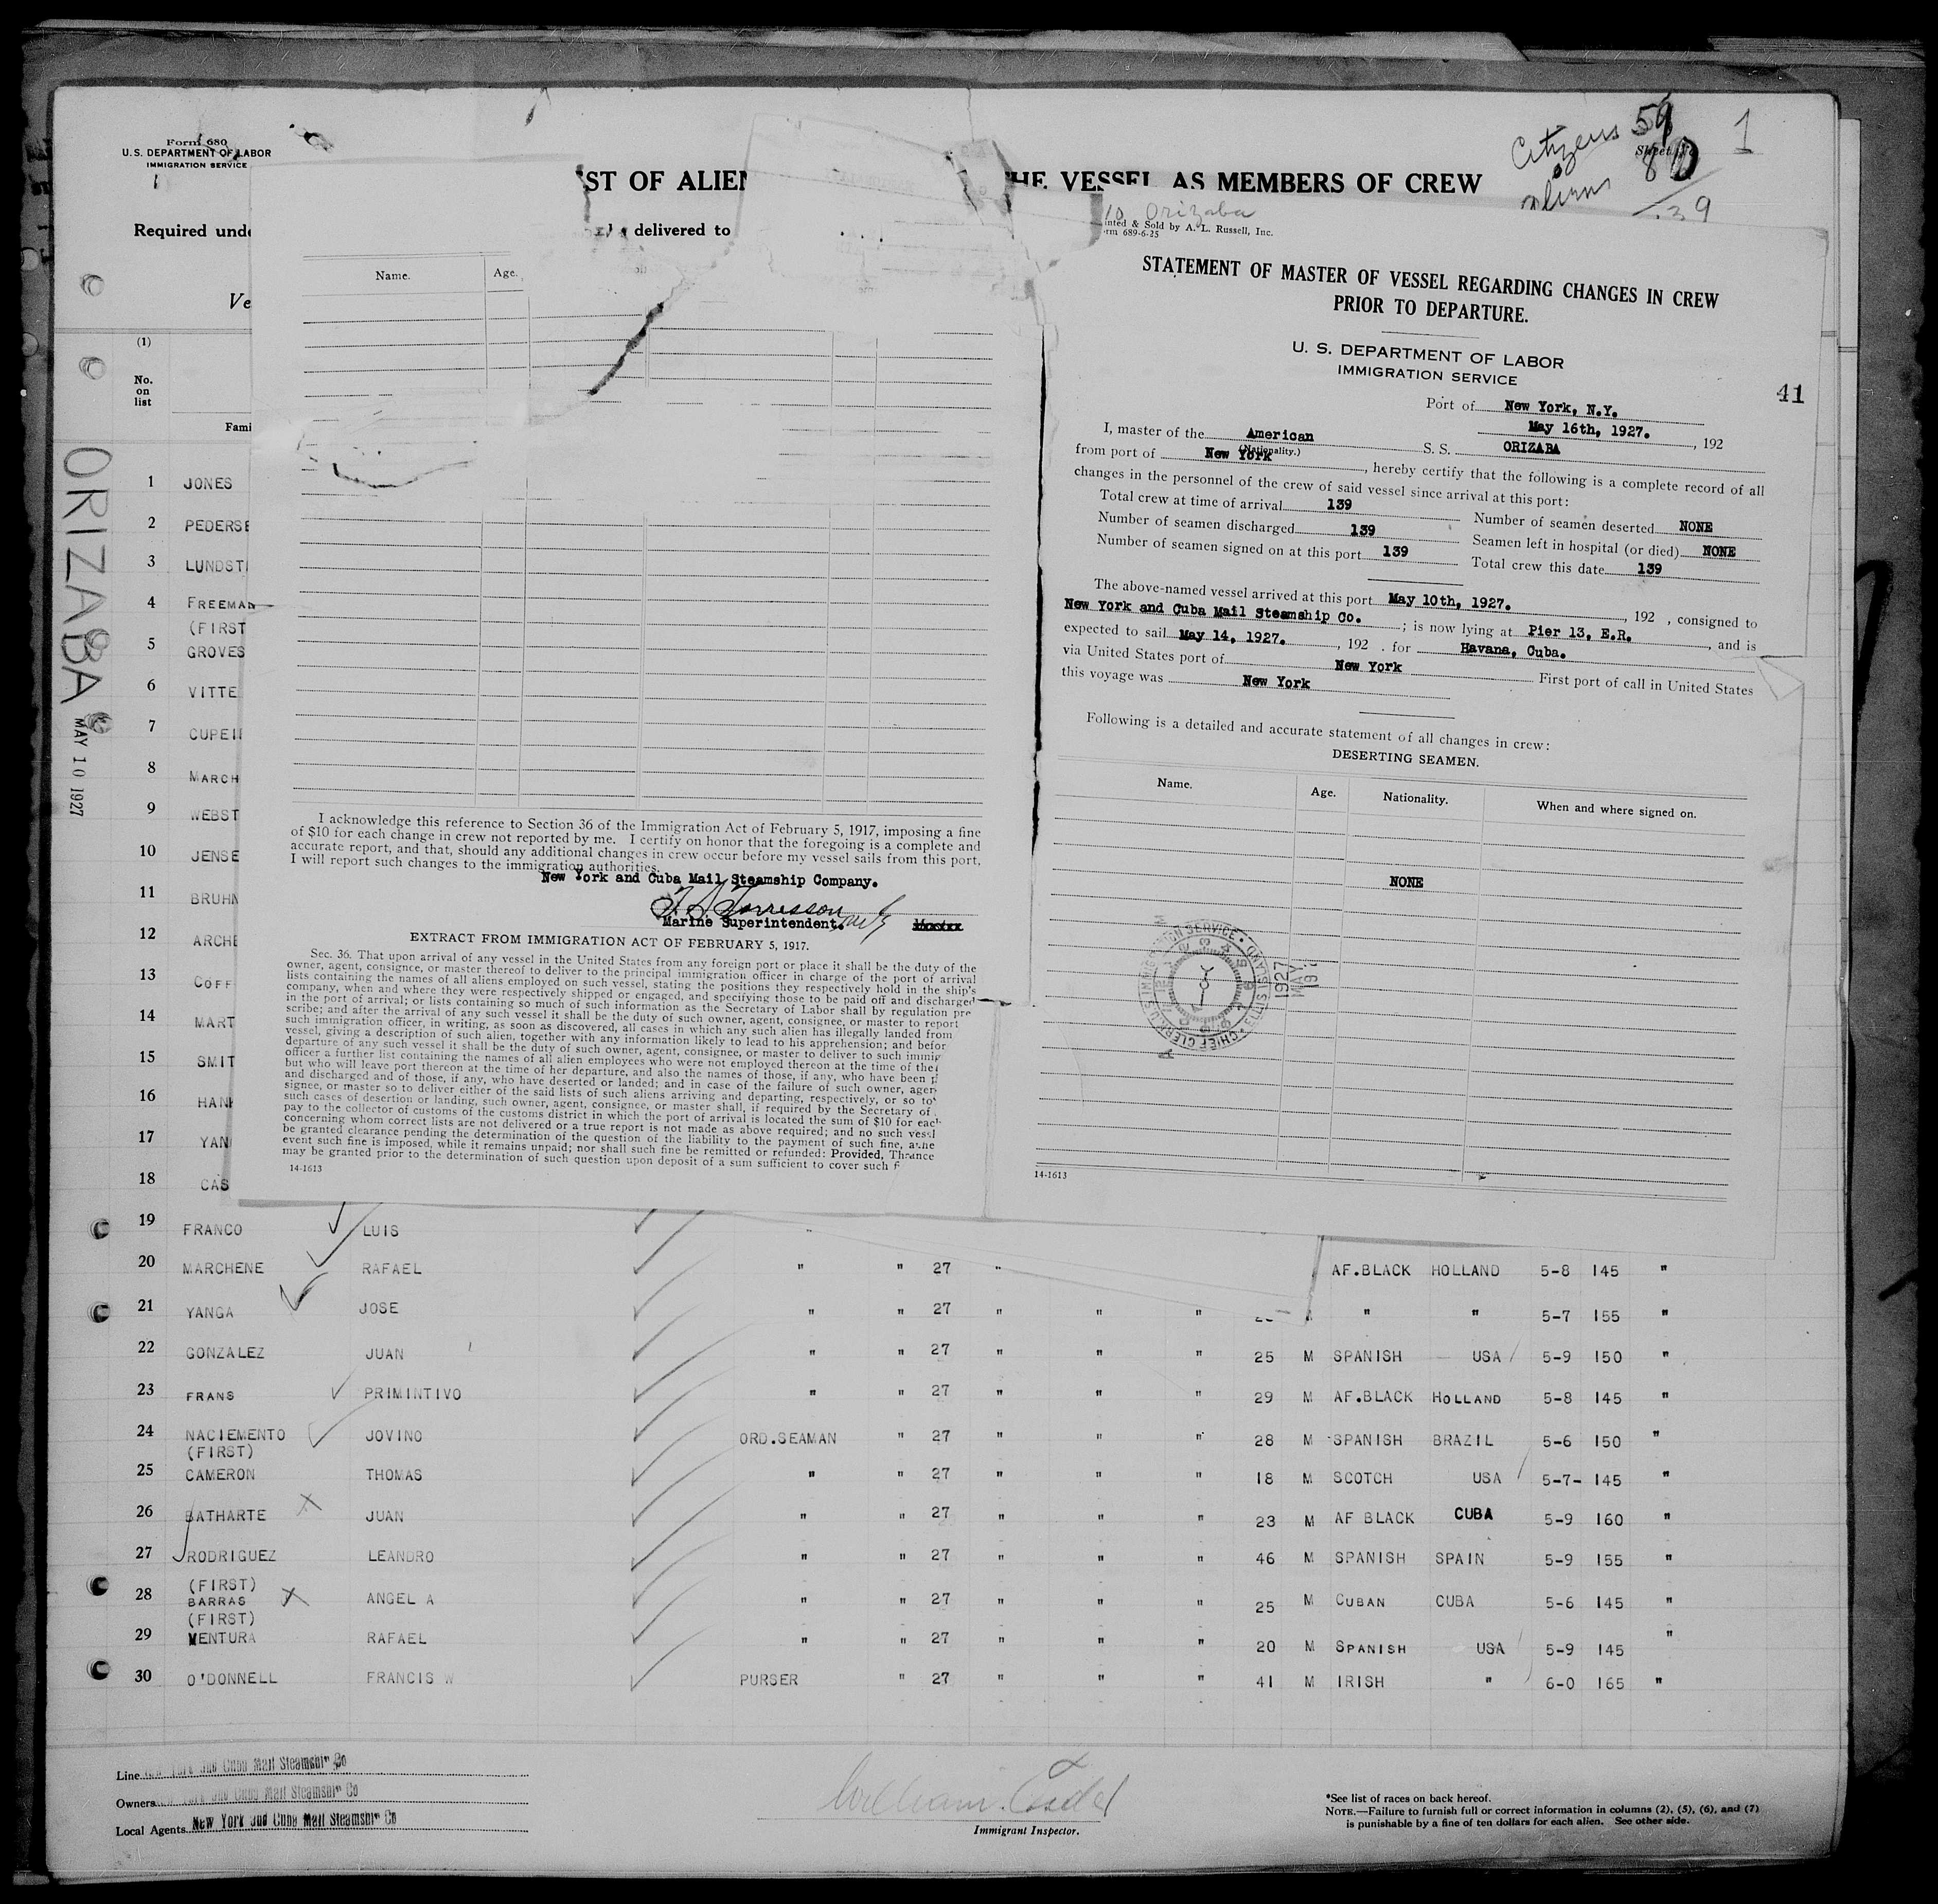 Form 680
U.S. DEPARTMENT OF LABOR
IMMIGRATION SERVICE
ST OF ALIEN
HE VESSEL AS MEMBERS OF CREW
Citizens 59
Aliens 80
139
1
Required unde
delivered to
Orizaba
inted & Sold by A. L. Russell, Inc.
rm 689-6-25
Ve
(1)
No.
on
list
Fami
ORIZABA
MAY 10 1927
1 JONES
2 PEDERSE
3 LUNDST
4 FREEMAN
(FIRST
5 GROVES
6 VITTE
7 CUPEI
8 MARCH
9 WEBST
10 JENSE
11 BRUHN
12 ARCHE
13 COFF
14 MART
15 SMIT
16 HAN
17 YAN
18 CAS
Name. Age.
I acknowledge this reference to Section 36 of the Immigration Act of February 5, 1917, imposing a fine
of $10 for each change in crew not reported by me. I certify on honor that the foregoing is a complete and
accurate report, and that, should any additional changes in crew occur before my vessel sails from this port,
I will report such changes to the immigration authorities.
New York and Cuba Mail Steamship Company.
Marine Superintendent.
EXTRACT FROM IMMIGRATION ACT OF FEBRUARY 5, 1917.
Sec. 36. That upon arrival of any vessel in the United States from any foreign port or place it shall be the duty of the
owner, agent, consignee, or master thereof to deliver to the principal immigration officer in charge of the port of arrival
lists containing the names of all aliens employed on such vessel, stating the positions they respectively hold in the ship's
company, when and where they were respectively shipped or engaged, and specifying those to be paid off and discharged
in the port of arrival; or lists containing so much of such information as the Secretary of Labor shall by regulation pre
scribe; and after the arrival of any such vessel it shall be the duty of such owner, agent, consignee, or master to report
such immigration officer, in writing, as soon as discovered, all cases in which any such alien has illegally landed from
vessel, giving a description of such alien, together with any information likely to lead to his apprehension; and befor
departure of any such vessel it shall be the duty of such owner, agent, consignee, or master to deliver to such immig
officer a further list containing the names of all alien employees who were not employed thereon at the time of the
but who will leave port thereon at the time of her departure, and also the names of those, if any, who have been p
and discharged and of those, if any, who have deserted or landed; and in case of the failure of such owner, agen
signee, or master so to deliver either of the said lists of such aliens arriving and departing, respectively, or so to
such cases of desertion or landing, such owner, agent, consignee, or master shall, if required by the Secretary of
pay to the collector of customs of the customs district in which the port of arrival is located the sum of $10 for each
concerning whom correct lists are not delivered or a true report is not made as above required; and no such vessel
be granted clearance pending the determination of the question of the liability to the payment of such fine, a
event such fine is imposed, while it remains unpaid; nor shall such fine be remitted or refunded: Provided, Th
may be granted prior to the determination of such question upon deposit of a sum sufficient to cover such f
14-1613
STATEMENT OF MASTER OF VESSEL REGARDING CHANGES IN CREW
PRIOR TO DEPARTURE.
U. S. DEPARTMENT OF LABOR
IMMIGRATION SERVICE
41
Port of New York, N.Y.
May 16th, 1927. , 192
I, master of the American S. S. ORIZABA
(Nationality.)
from port of New York , hereby certify that the following is a complete record of all
changes in the personnel of the crew of said vessel since arrival at this port:
Total crew at time of arrival 139
Number of seamen deserted NONE
Number of seamen discharged 139
Seamen left in hospital (or died) NONE
Number of seamen signed on at this port 139
Total crew this date 139
The above-named vessel arrived at this port May 10th, 1927. , 192 , consigned to
New York and Cuba Mail Steamship Co. ; is now lying at Pier 13, E.R. , and is
expected to sail May 14, 1927. , 192 . for Havana, Cuba.
via United States port of New York First port of call in United States
this voyage was New York
Following is a detailed and accurate statement of all changes in crew:
DESERTING SEAMEN.
Name. Age. Nationality. When and where signed on.
NONE
1927
MAY
14-1613
19 FRANCO LUIS
20 MARCHENE RAFAEL " " 27 " AF.BLACK HOLLAND 5-8 145 "
21 YANGA JOSE " " 27 " " " " " 5-7 155 "
22 GONZALEZ JUAN " " 27 " " " 25 M SPANISH USA 5-9 150 "
23 FRANS PRIMINTIVO " " 27 " " " 29 M AF.BLACK HOLLAND 5-8 145 "
24 NACIEMENTO JOVINO ORD.SEAMAN " 27 " " " 28 M SPANISH BRAZIL 5-6 150 "
(FIRST)
25 CAMERON THOMAS " " 27 " " " 18 M SCOTCH USA 5-7- 145 "
26 BATHARTE JUAN " " 27 " " " 23 M AF BLACK CUBA 5-9 160 "
27 RODRIGUEZ LEANDRO " " 27 " " " 46 M SPANISH SPAIN 5-9 155 "
(FIRST)
28 BARRAS ANGEL A " " 27 " " " 25 M CUBAN CUBA 5-6 145 "
(FIRST)
29 MENTURA RAFAEL " " 27 " " " 20 M SPANISH USA 5-9 145 "
30 O'DONNELL FRANCIS W PURSER " 27 " " " 41 M IRISH " 6-0 165 "
Line New York and Cuba Mail Steamship Co
Owners New York and Cuba Mail Steamship Co
Local Agents New York and Cuba Mail Steamship Co
Immigrant Inspector.
*See list of races on back hereof.
NOTE.—Failure to furnish full or correct information in columns (2), (5), (6), and (7)
is punishable by a fine of ten dollars for each alien. See other side.